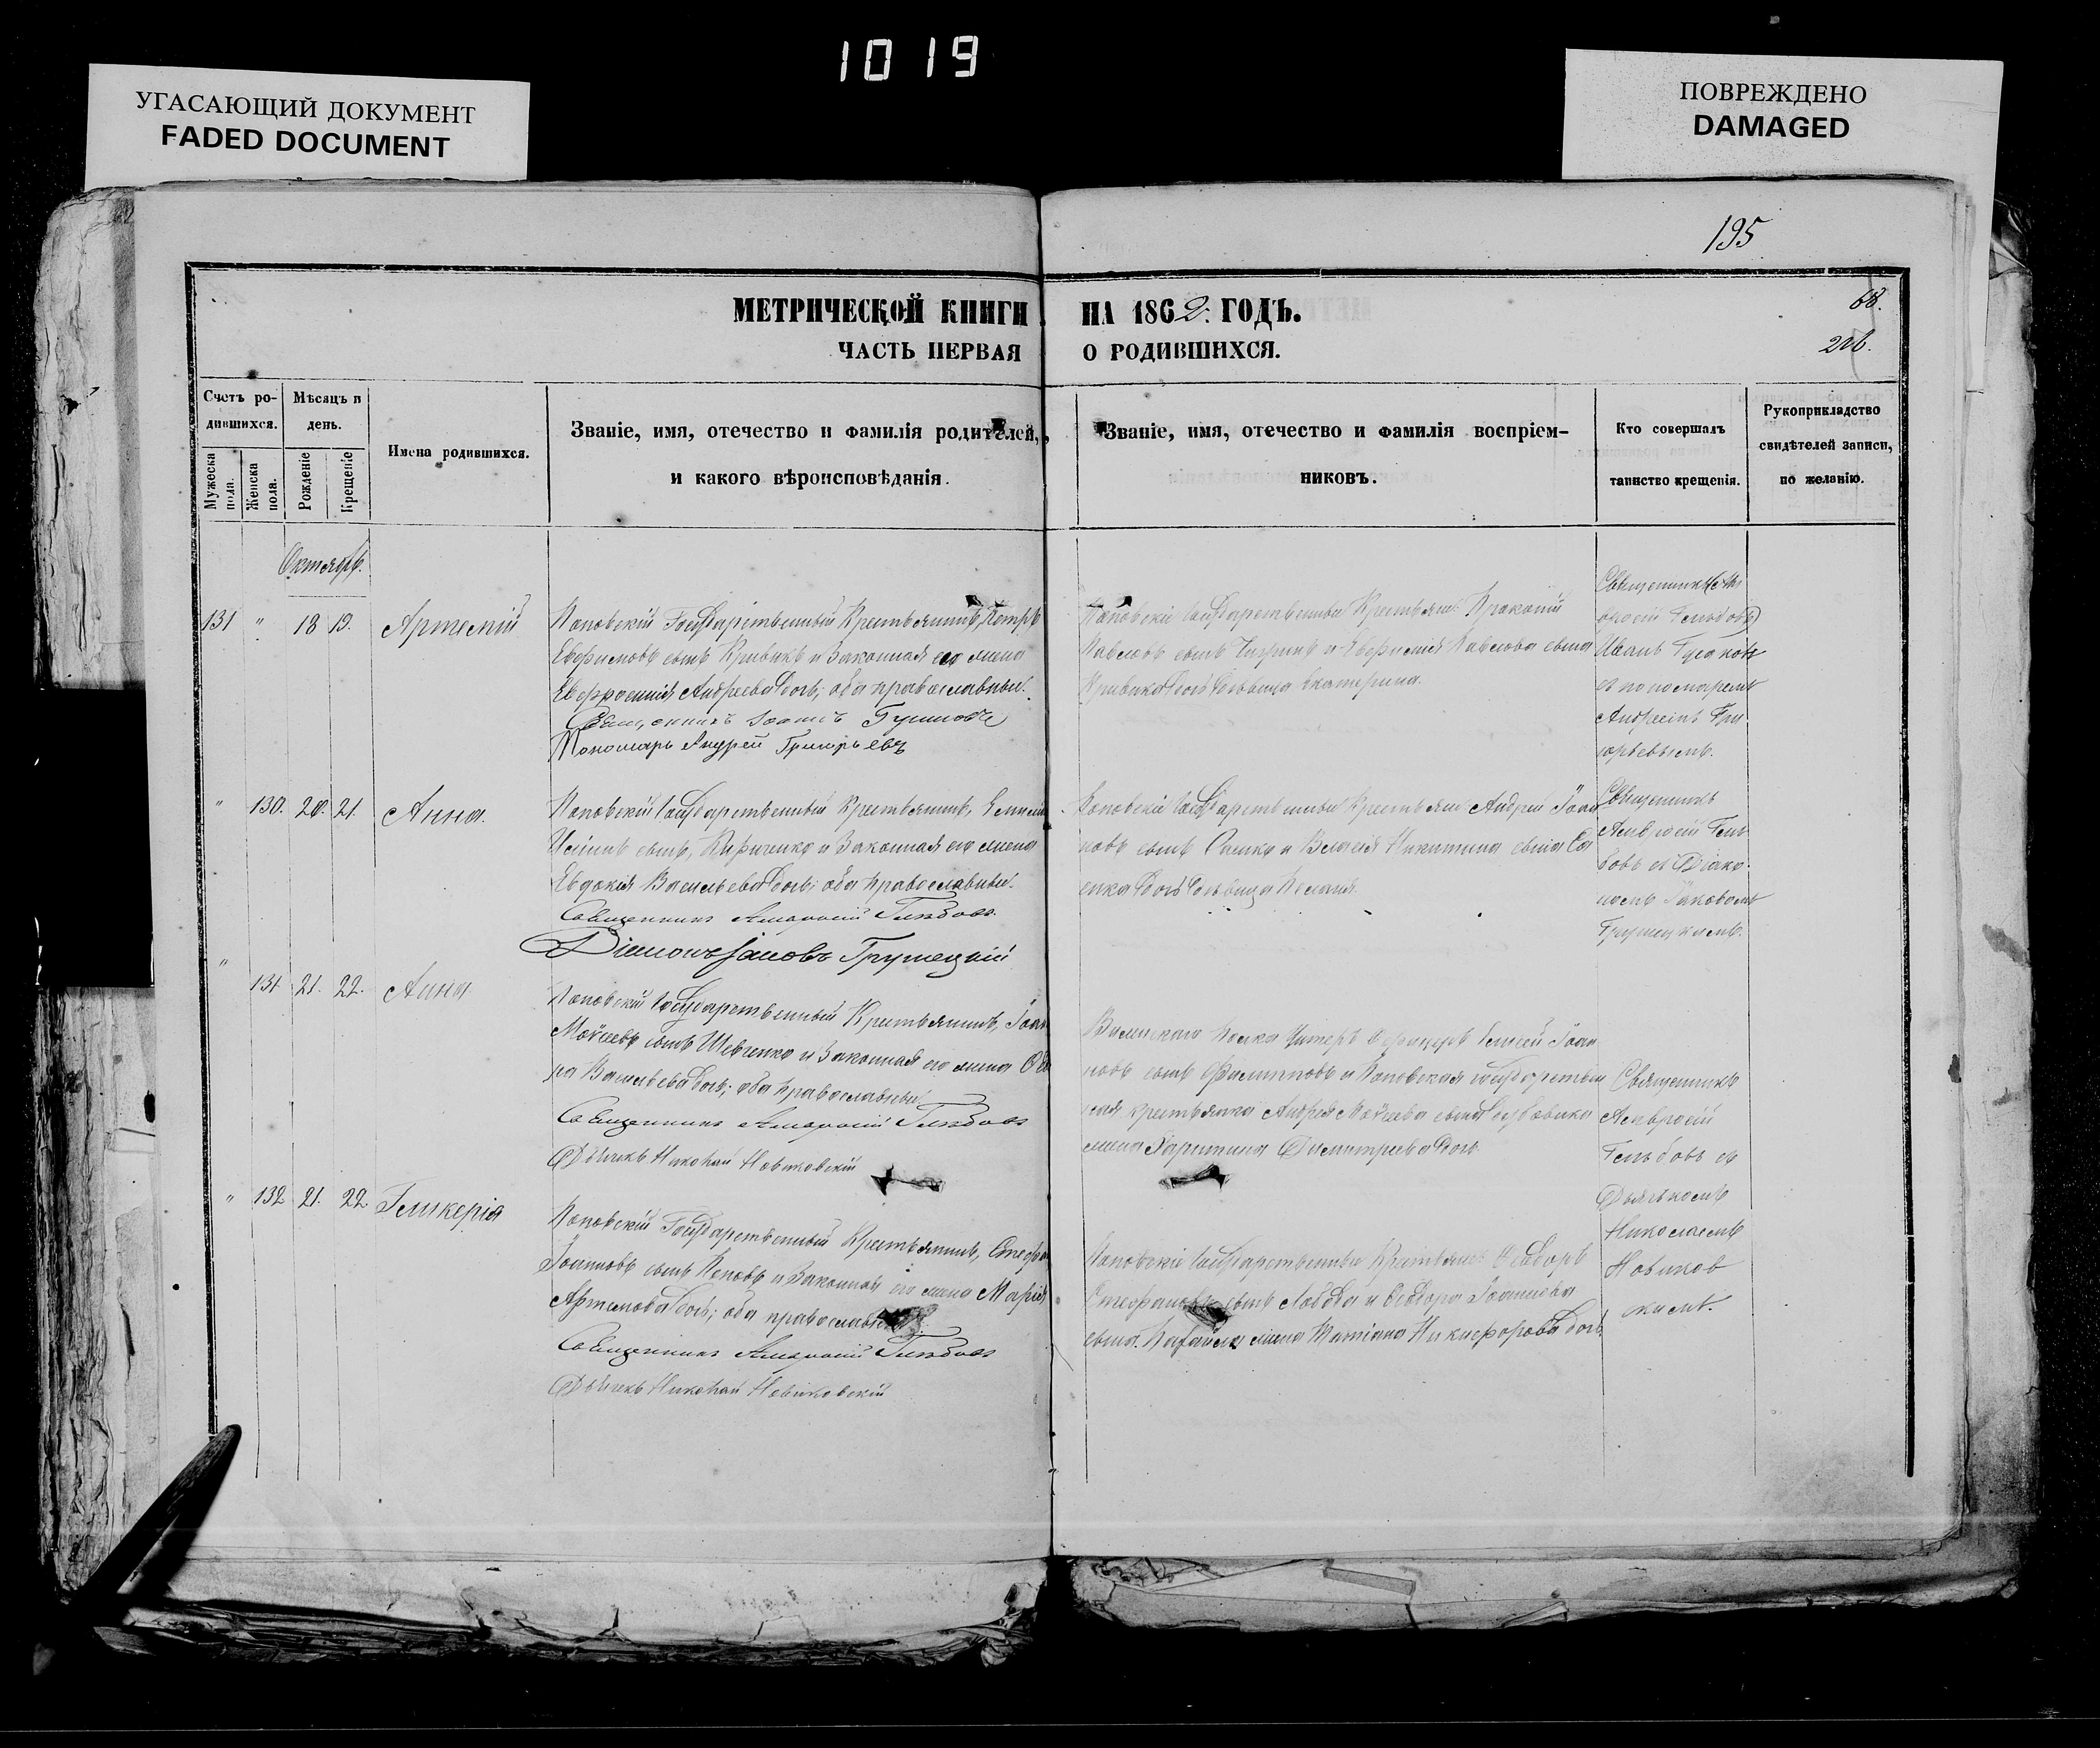 1019
УГАСАЮЩИЙ ДОКУМЕНТ
FADED DOCUMENT
ПОВРЕЖДЕНО
DAMAGED
195
МЕТРИЧЕСКОЙ КНИГИ НА 1862. ГОДЪ.
68.
ЧАСТЬ ПЕРВАЯ О РОДИВШИХСЯ.
206.
Счетъ ро-
дившихся.
Мужеска пола.
Женска пола.
Мѣсяцъ и
день.
Рожденіе
Крещеніе
Имена родившихся.
Званіе, имя, отечество и фамилія родителей,
и какого вѣроисповѣданія.
Званіе, имя, отечество и фамилія воспріем-
никовъ.
Кто совершалъ
таинство крещенія.
Рукоприкладство
свидѣтелей записи,
по желанію.
Октябрь.
131 " 18 19. Артемій
Поповскій Государственный Крестьянинъ, Петръ
Евфимовъ сынъ Кривикъ и Законная его жена
Евфросинія Андреева дочь; оба православные.
Священникъ Іоаннъ
Пономарь Андрей Григорьевъ
Поповскіе Государственные Крестьяне Прокопій
Павловъ сынъ и Евфимія Павлова сына
Кривика дочь девица Екатерина.
Священникъ
Иванъ
съ пономаремъ
Андреемъ Гри
горьевымъ.
" 130. 20. 21. Анна.
Поповскій Государственный Крестьянинъ,
сынъ, Кириченко и Законная его жена
Евдокія Васильева дочь; оба православные.
Священникъ Амвросій Глѣбовъ.
Діаконъ Іаковъ Грушецкій
Поповскіе Государственные Крестьяне Андрей Іоан
новъ сынъ Сашко и Власія Никитина сына Са
енка дочь девица Пелагія.
Священникъ
Амвросій Глѣ
бовъ съ Діако
номъ Іаковомъ
Грушецкимъ.
" 131. 21. 22. Анна.
Поповскій Государственный Крестьянинъ, Іоан
Моѵсеевъ сынъ Шевченко и Законная его жена
ра Васильева дочь; оба православные.
Священникъ Амвросій Глѣбовъ
Дьячекъ Николай Новиковскій
полка Унтеръ Офицеръ Іоан
новъ сынъ Филипповъ и Поповская Государствен
ная крестьянка Андрея Моѵсеева сына
жена Харитина Димитріева дочь.
Священникъ
Амвросій
Глѣбовъ съ
Дьячкомъ
Николаемъ
Новиков
скимъ.
" 132 21. 22. Гликерія
Поповскій Государственный Крестьянинъ, Стефа
Іоанновъ сынъ Поповъ и Законная его жена Марія
Артемова дочь; оба православные.
Священникъ Амвросій Глѣбовъ
Дьячекъ Николай Новиковскій
Поповскіе Государственные Крестьяне Ѳеодоръ
Стефановъ сынъ Лобода и Ѳеодора Іоаннова
сына жена Татіана Никифорова дочь.